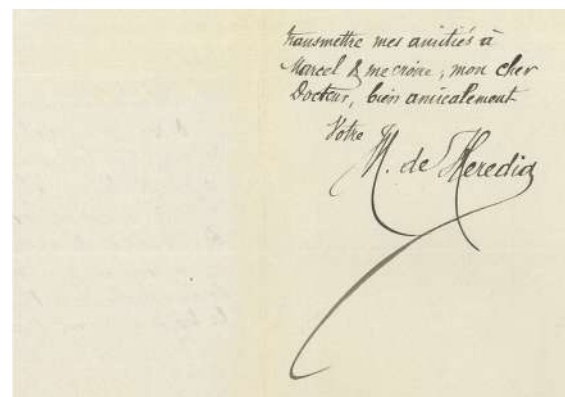 transmettre mes amitiés à
Marcel & me croire, mon cher
Docteur, bien amicalement
Votre
M. de Heredia